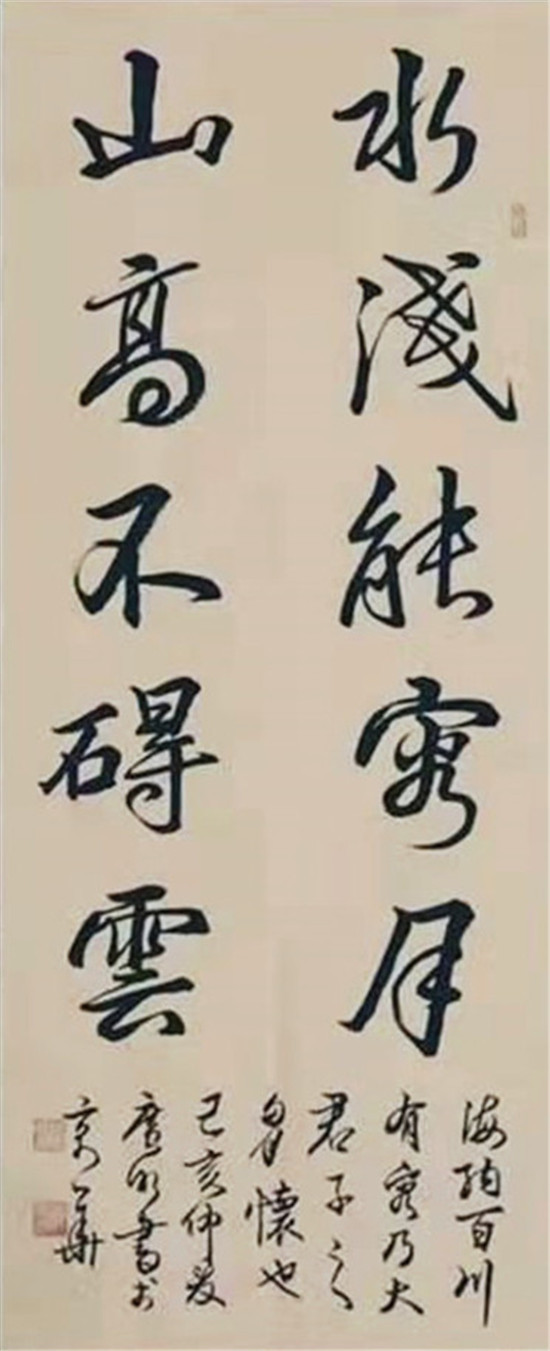 水淺能容月
山高不碍雲
海納百川
有容乃大
君子之
胸懷也
己亥仲夏
書於
京華